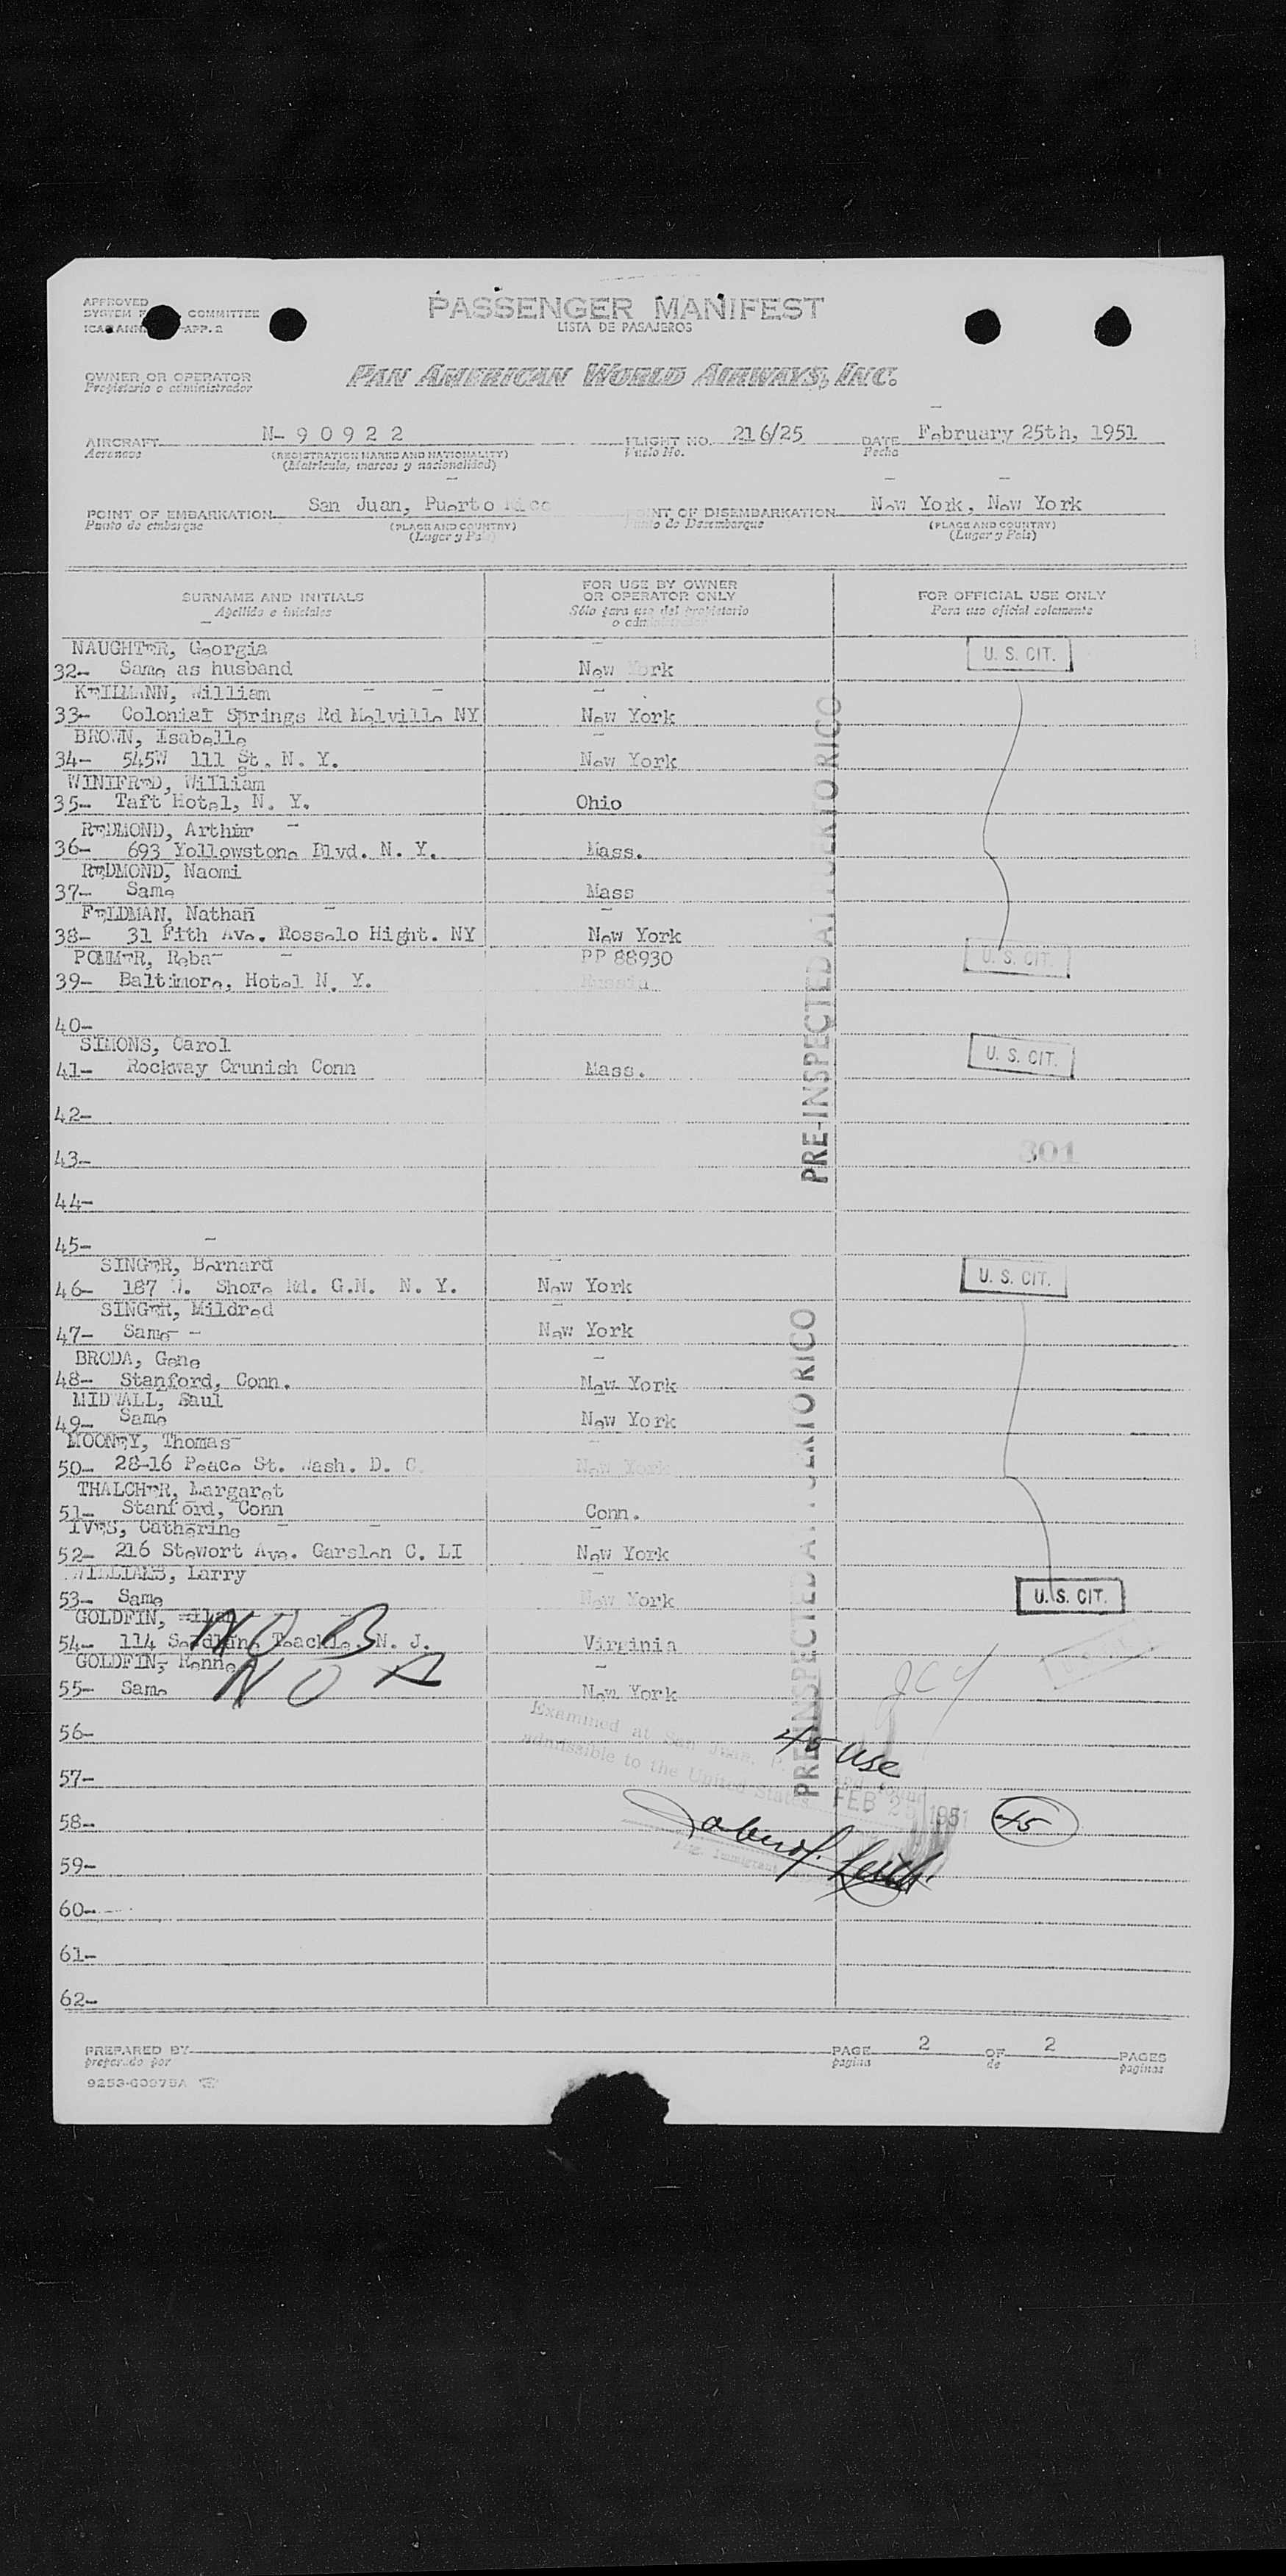 APPROVED
SYSTEM COMMITTEE
ICAO ANN. APP. 2
PASSENGER MANIFEST
LISTA DE PASAJEROS
OWNER OR OPERATOR
Propietario o administrador
PAN AMERICAN WORLD AIRWAYS, INC.
AIRCRAFT N- 9 0 9 2 2 FLIGHT NO. 216/25 DATE February 25th, 1951
Aeronave (REGISTRATION MARKS AND NATIONALITY) Vuelo No. Fecha
(Matricula, marcas y nacionalidad)
POINT OF EMBARKATION San Juan, Puerto Rico POINT OF DISEMBARKATION New York, New York
Punto de embarque (PLACE AND COUNTRY) Punto de Desembarque (PLACE AND COUNTRY)
(Lugar y País) (Lugar y País)
SURNAME AND INITIALS
Apellido e iniciales
FOR USE BY OWNER
OR OPERATOR ONLY
Sólo para uso del propietario
o administrador
FOR OFFICIAL USE ONLY
Para uso oficial solamente
NAUGHTER, Georgia
32- Same as husband New York U. S. CIT.
KEILMANN, William
33- Colonial Springs Rd Melville NY New York
BROWN, Isabelle
34- 545W 111 St. N. Y. New York
WINIFRED, William
35- Taft Hotel, N. Y. Ohio
REDMOND, Arthur
36- 693 Yollowstone Blvd. N. Y. Mass.
REDMOND, Naomi
37- Same Mass
FELDMAN, Nathan
38- 31 Fith Ave. Rosselo Hight. NY New York
POMMER, Reba PP 88930 U. S. CIT.
39- Baltimore, Hotel N. Y. Russia
40-
SIMONS, Carol
41- Rockway Crunish Conn Mass. U. S. CIT.
42-
43- 301
44-
45-
SINGER, Bernard
46- 187 W. Shore Rd. G.N. N. Y. New York U. S. CIT.
SINGER, Mildred
47- Same New York
BRODA, Gene
48- Stanford, Conn. New York
MIDWALL, Saul
49- Same New York
MOONEY, Thomas
50- 28-16 Peace St. Wash. D. C. New York
THALCHER, Margaret
51- Stanford, Conn Conn.
IVES, Catherine
52- 216 Stewort Ave. Garslen C. LI New York
WILLIAMS, Larry
53- Same New York U. S. CIT.
GOLDFIN,
54- 114 Teackle. N. J. Virginia
NO B
GOLDFIN, Renne
55- Same New York
NO
PRE-INSPECTED AT PUERTO RICO
PRE-INSPECTED AT PUERTO RICO
56-
57-
58-
59-
60-
61-
62-
Examined at San Juan, P.
admissible to the United States
FEB 25 1951
45 usc
45
PREPARED BY PAGE 2 OF 2 PAGES
preparado por página de páginas
9253-G0975A